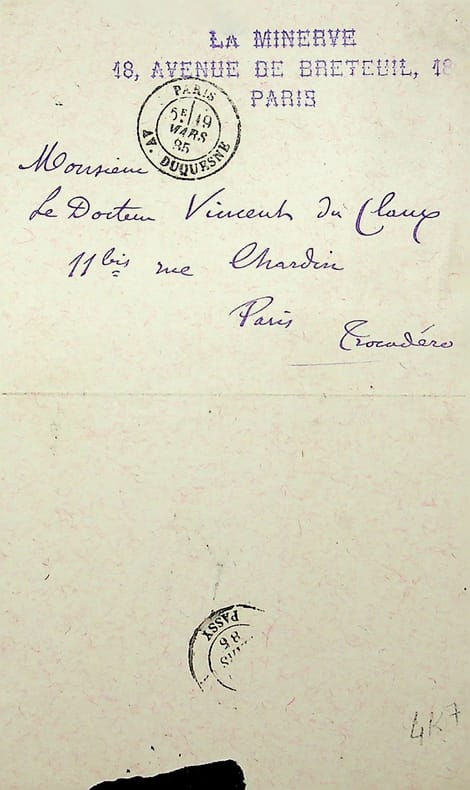 LA MINERVE
18, AVENUE DE BRETEUIL, 18
PARIS
PARIS
5E 19
MARS
85
AV. DUQUESNE
Monsieur
Le Docteur Vincent du Claux
11bis rue Chardin
Paris Trocadéro
PASSY
85
4K7